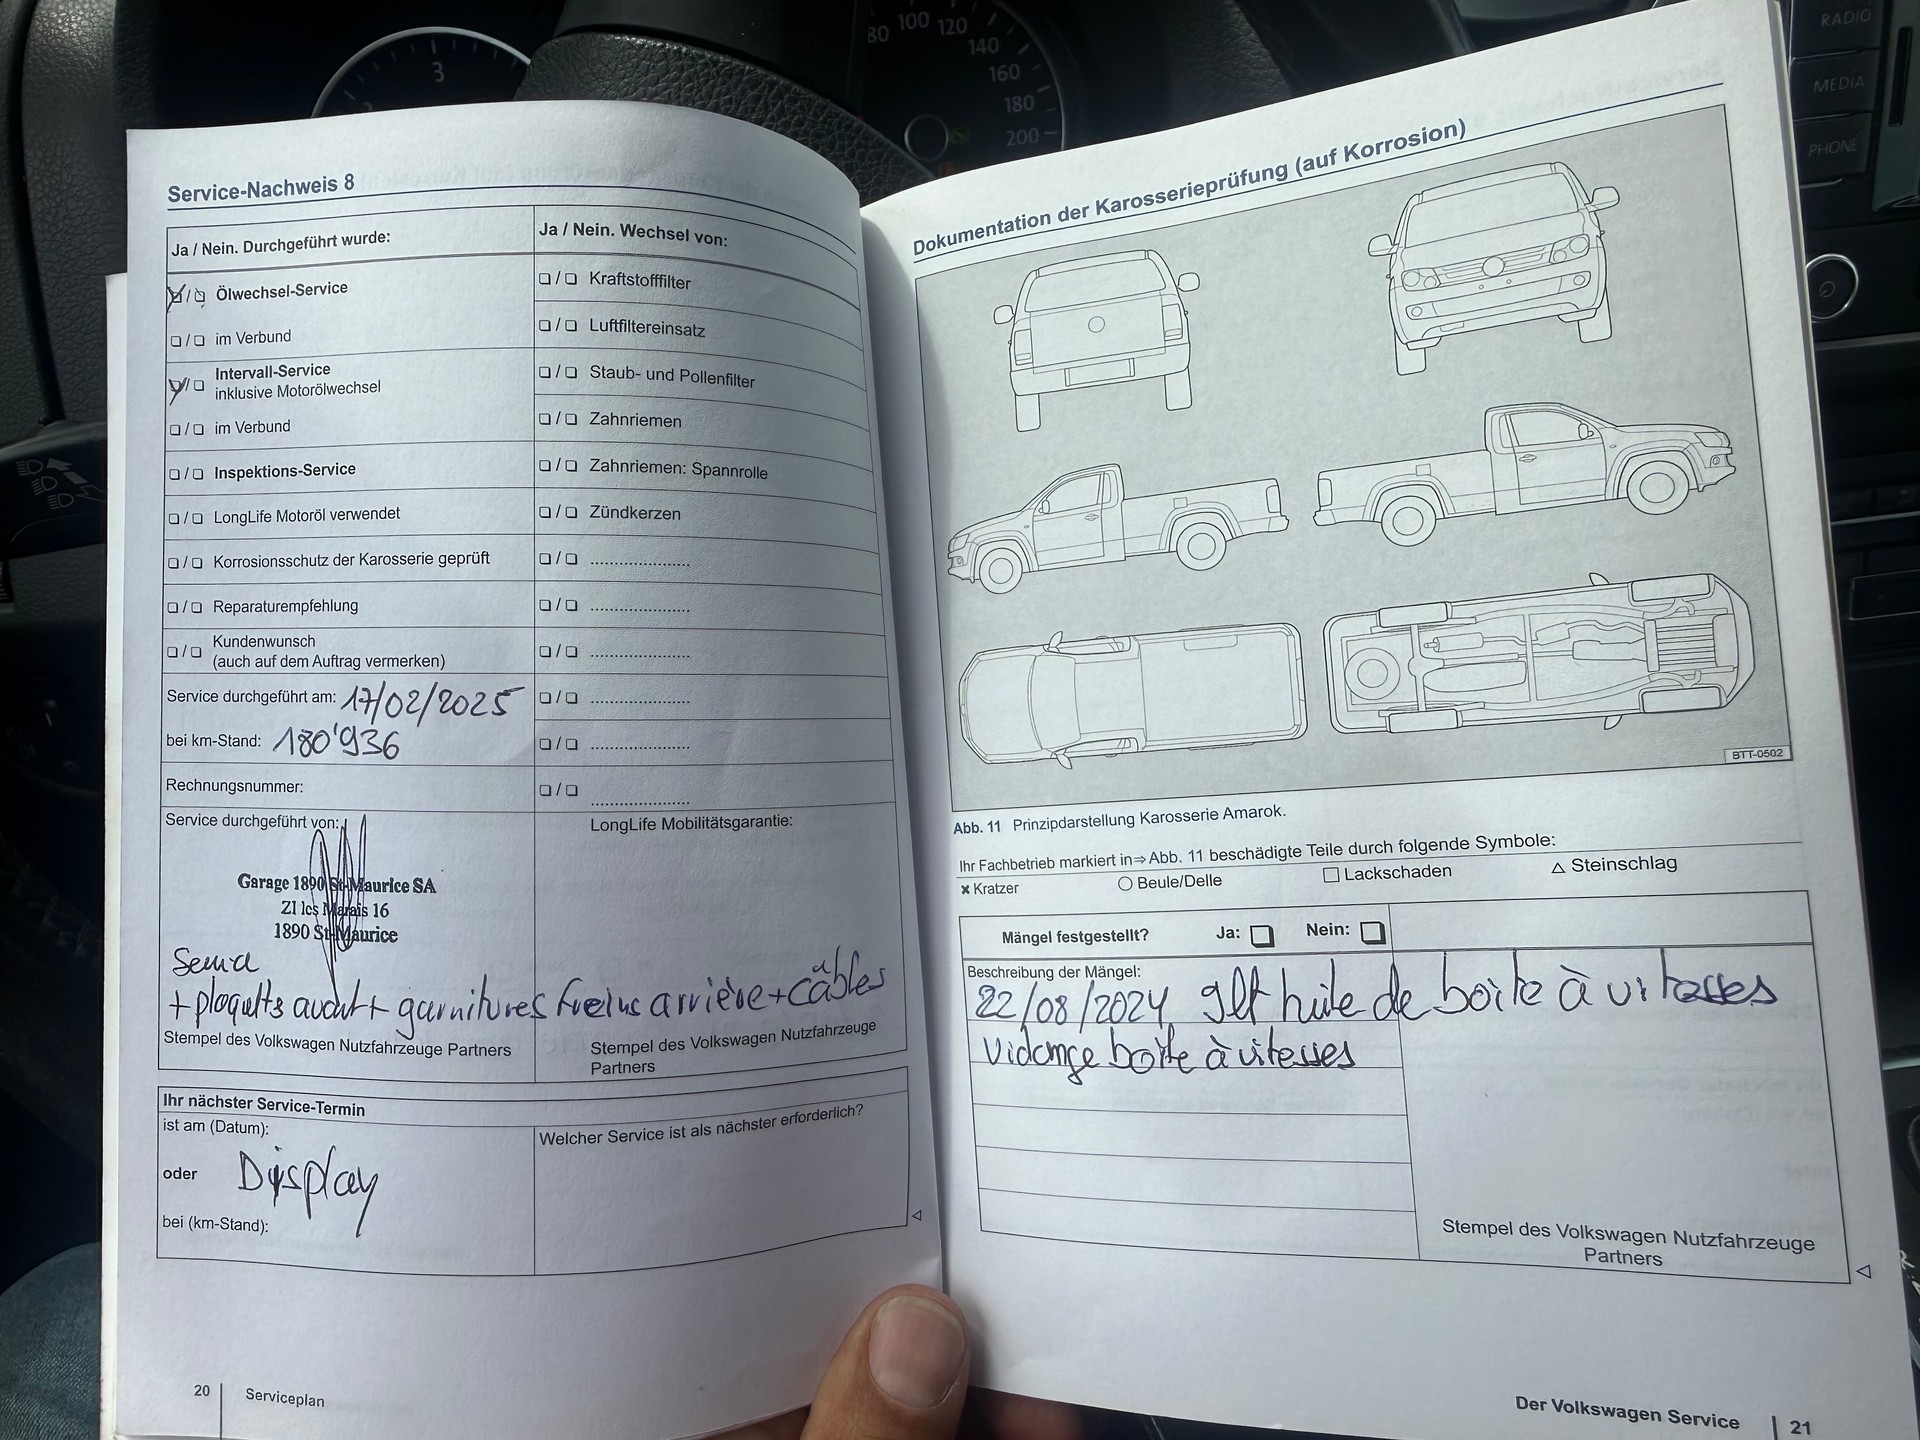 80 100 120
140
160
180
200
3
RADIO
MEDIA
PHONE
Service-Nachweis 8
Ja / Nein. Durchgeführt wurde:
Ölwechsel-Service
im Verbund
Intervall-Service
inklusive Motorölwechsel
im Verbund
Inspektions-Service
LongLife Motoröl verwendet
Korrosionsschutz der Karosserie geprüft
Reparaturempfehlung
Kundenwunsch
(auch auf dem Auftrag vermerken)
Service durchgeführt am: 17/02/2025
bei km-Stand: 180'936
Rechnungsnummer:
Ja / Nein. Wechsel von:
Kraftstofffilter
Luftfiltereinsatz
Staub- und Pollenfilter
Zahnriemen
Zahnriemen: Spannrolle
Zündkerzen
Service durchgeführt von:
Garage 1890 St-Maurice SA
ZI les Marais 16
1890 St-Maurice
LongLife Mobilitätsgarantie:
+ plaquetts avant + garnitures freins arrière + câbles
Stempel des Volkswagen Nutzfahrzeuge Partners
Stempel des Volkswagen Nutzfahrzeuge
Partners
Ihr nächster Service-Termin
ist am (Datum):
oder Display
bei (km-Stand):
Welcher Service ist als nächster erforderlich?
20 Serviceplan
Dokumentation der Karosserieprüfung (auf Korrosion)
BTT-0502
Abb. 11 Prinzipdarstellung Karosserie Amarok.
Ihr Fachbetrieb markiert in ⇒ Abb. 11 beschädigte Teile durch folgende Symbole:
× Kratzer ○ Beule/Delle □ Lackschaden △ Steinschlag
Mängel festgestellt? Ja: Nein:
Beschreibung der Mängel:
22/08/2024 9lt huile de boite à vitesses
Vidange boîte à vitesses
Stempel des Volkswagen Nutzfahrzeuge
Partners
Der Volkswagen Service 21